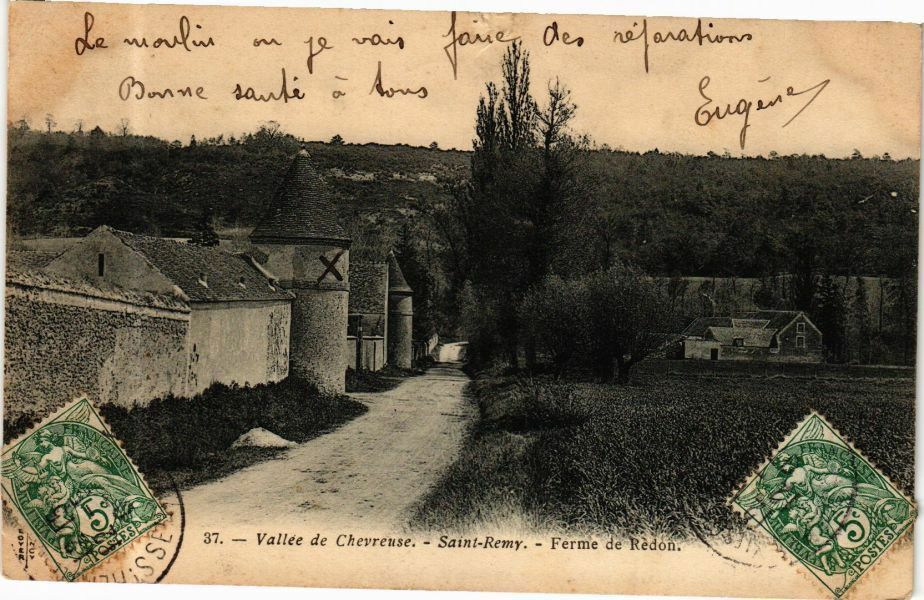 Le moulin ou je vais faire des réparations
Bonne santé à tous
Eugène
37. — Vallée de Chevreuse. - Saint-Remy. - Ferme de Rédon.
5
POSTES
5
POSTES